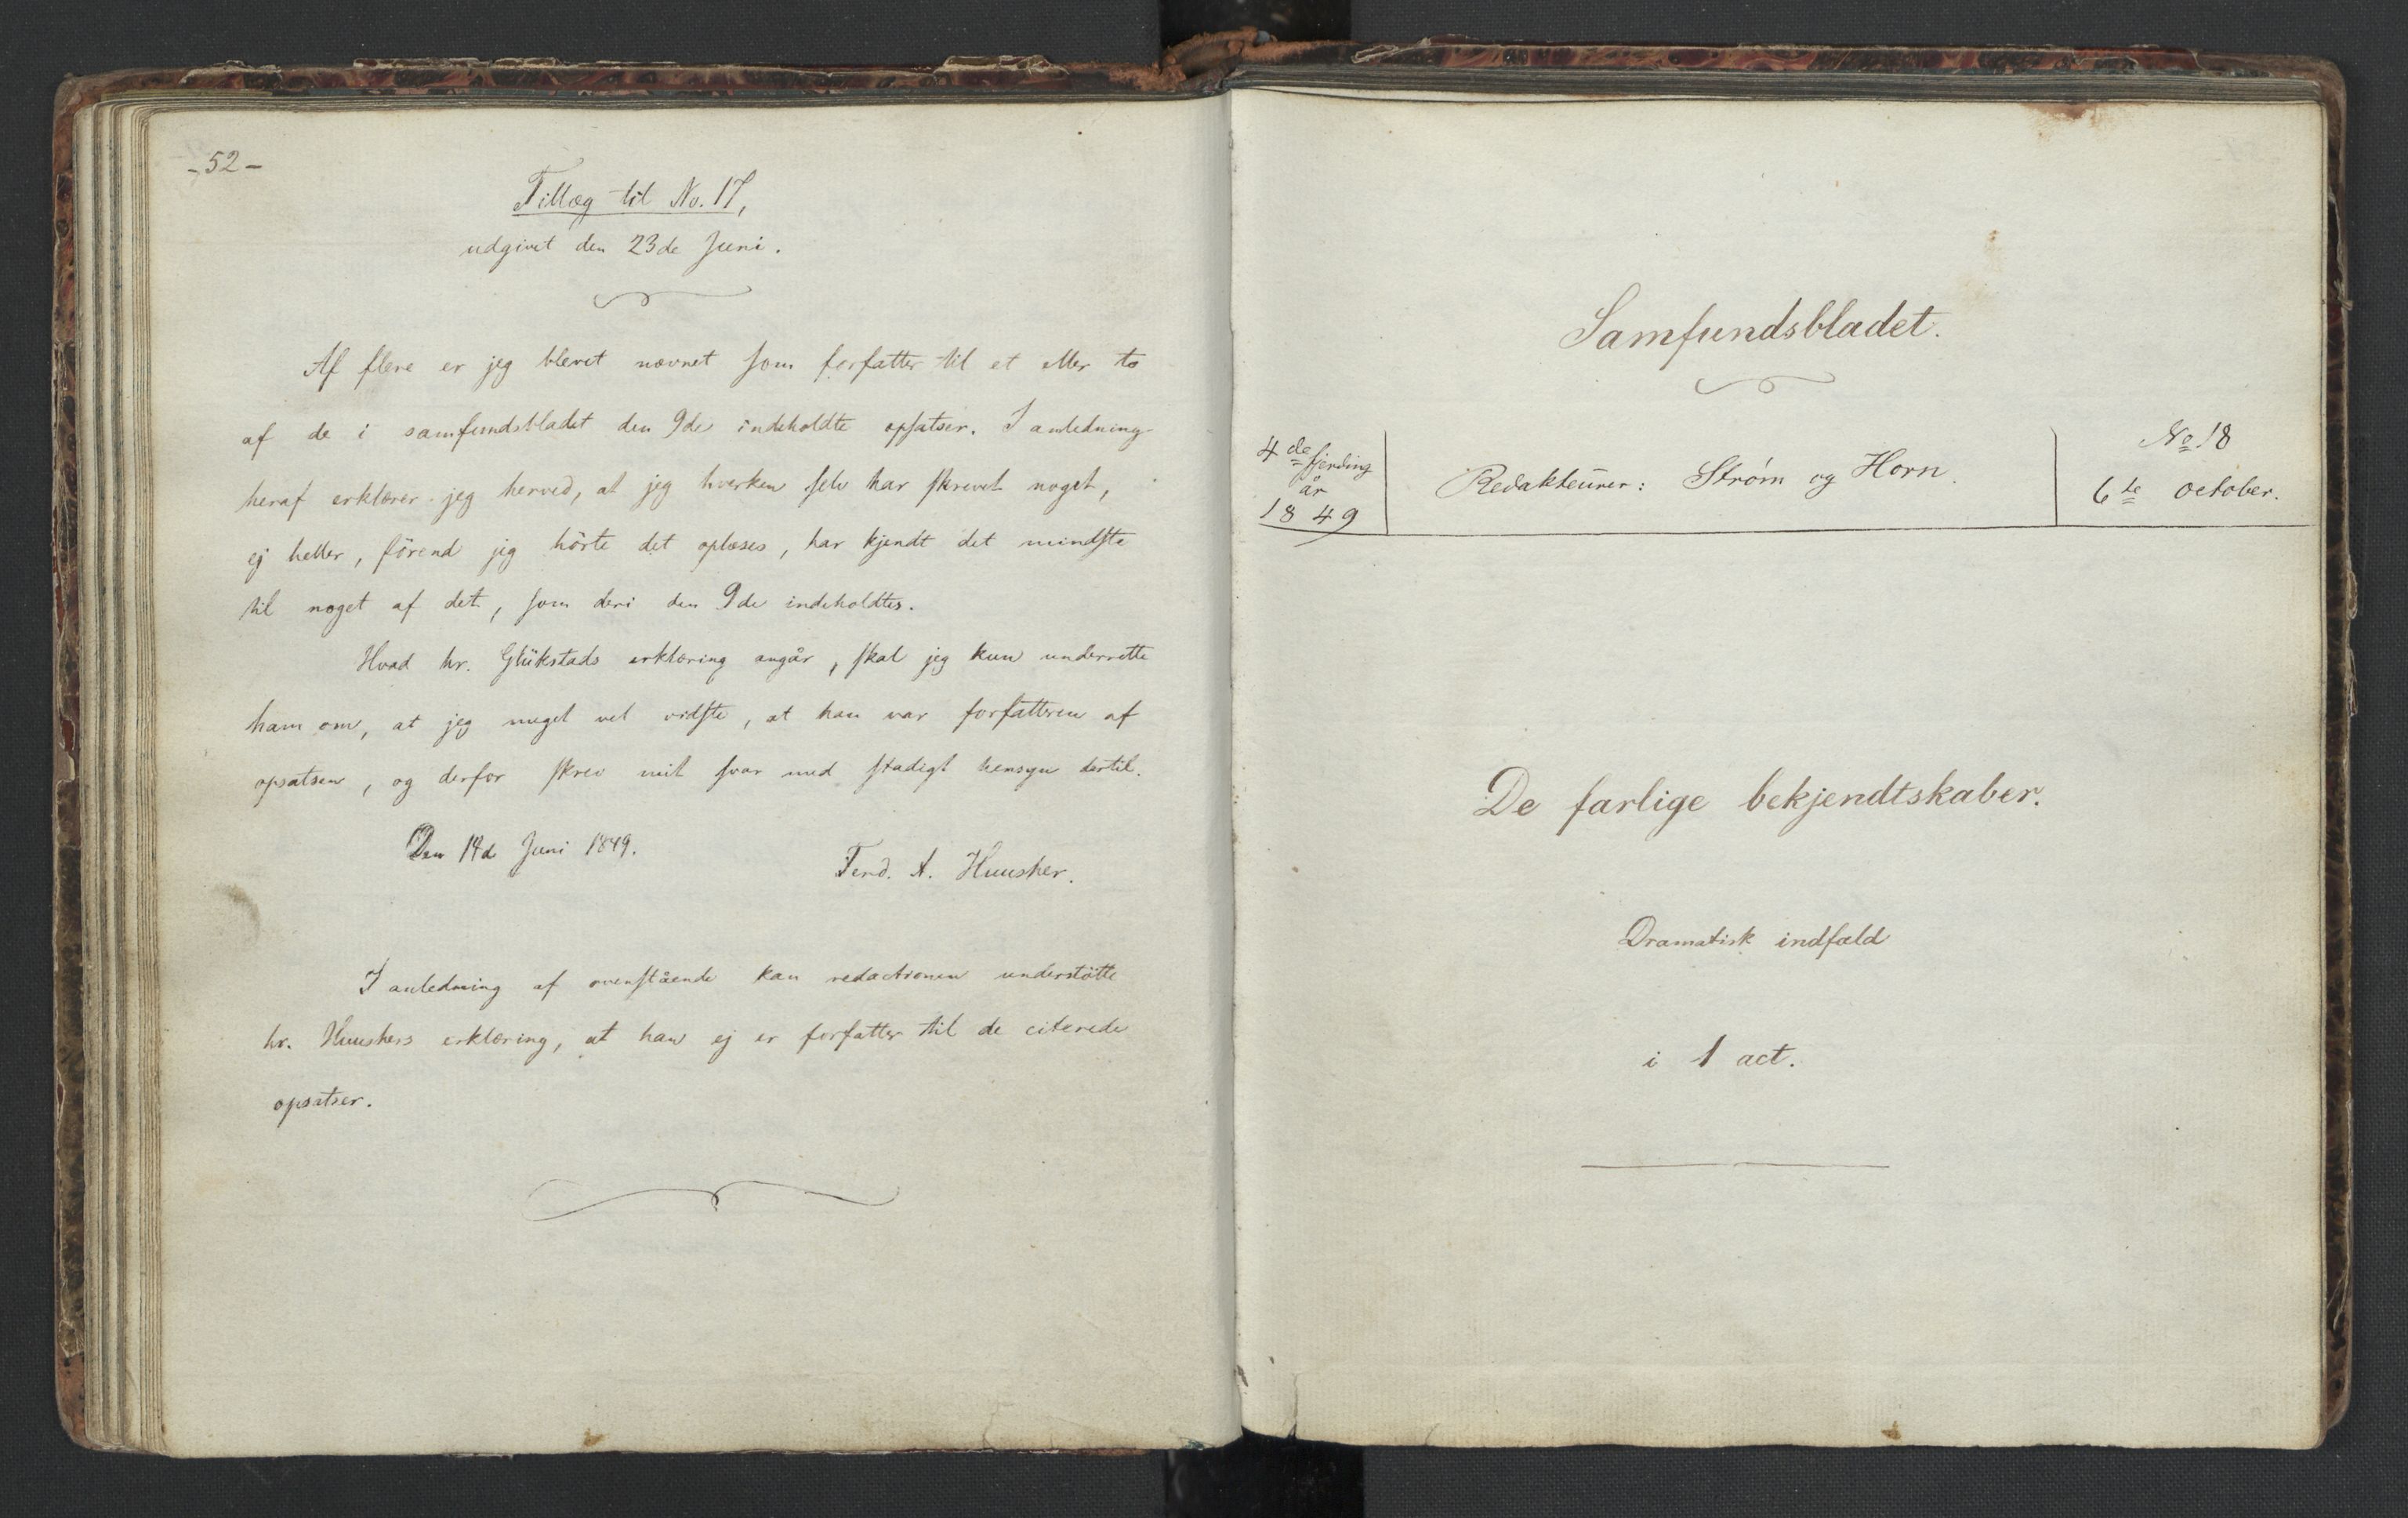 - 52 -
Tillæg til No. 17,
udgivet den 23de Juni.
Af flere er jeg blevet nævnet som forfatter til et eller to
af de i samfundsbladet den 9de indeholdte opsatser. I anledning
heraf erklærer jeg herved, at jeg hverken selv har skrevet noget,
ej heller, förend jeg hörte det oplæses, har kjendt det mindste
til noget af det, som deri den 9de indeholdtes.
Hvad hr. Glükstads erklæring angår, skal jeg kun underrette
ham om, at jeg meget vel vidste, at han var forfatteren af
opsatsen, og derfor skrev mit svar med stadigt hensyn dertil.
Den 14d Juni 1849.
Ferd. A. Huusher.
I anledning af ovenstående kan redactionen understötte
hr. Huushers erklæring, at han ej er forfatter til de citerede
opsatser.
Samfundsbladet.
4de fjerding
år
1849
Redakteurer: Strøm og Horn.
No 18
6te october.
De farlige bekjendtskaber.
Dramatisk indfald
i 1 act.